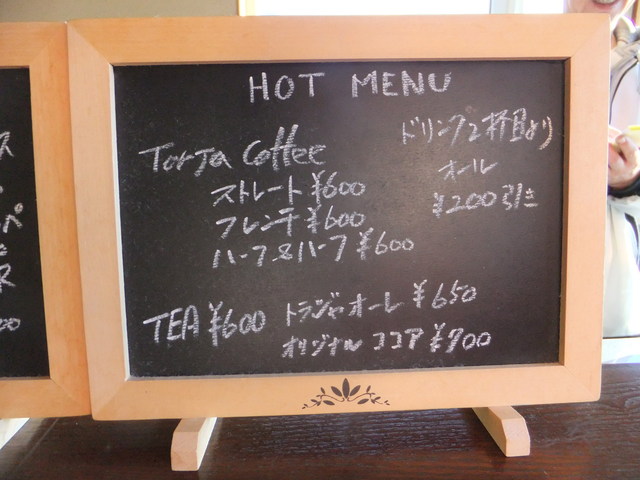 HOT MENU
Torja Coffee
ストレート ¥600
フレンチ ¥600
ハーフ&ハーフ ¥600
ドリンク2杯目より
オール
¥200引き
TEA ¥600
トラジャオーレ ¥650
オリジナル ココア ¥700